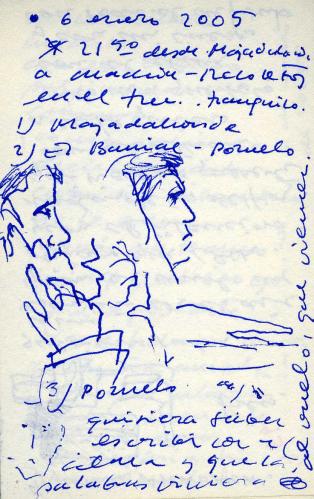 • 6 enero 2005
* 21 50 desde Majadahonda
a Madrid - Recoletos
en el tren. tranquilo.
1) Majadahonda
2) El Barrial - Pozuelo
3) Pozuelo
quisiera saber
escribir con
y que las
palabras viniera
al vuelo, que vienen.